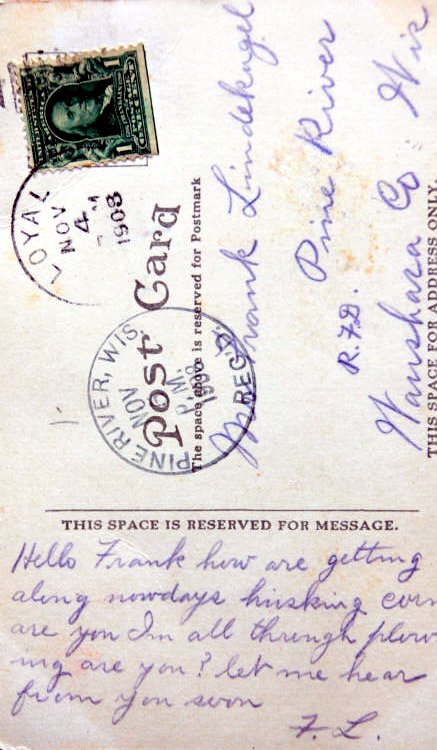 1 1
LOYAL
NOV
4
M
1908
Post Card
The space above is reserved for Postmark
PINE RIVER, WIS.
NOV
P.M.
1908
REC'D.
Frank Lindekugel
Pine River
R.F.D.
Waushara Co Wis
THIS SPACE FOR ADDRESS ONLY.
THIS SPACE IS RESERVED FOR MESSAGE.
Hello Frank how are getting
along nowdays husking corn
are you Im all through plow
ing are you? let me hear
from you soon
F. L.